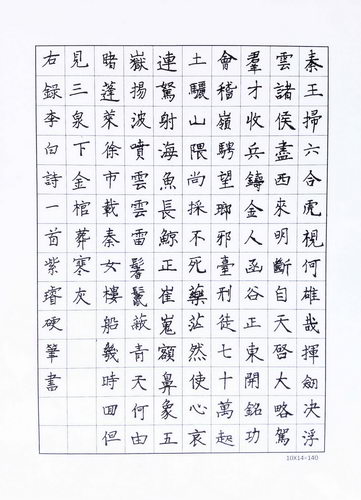 秦王掃六合虎視何雄哉揮劍決浮
雲諸侯盡西來明斷自天啓大略駕
羣才收兵鑄金人函谷正東開銘功
會稽嶺騁望瑯邪臺刑徒七十萬起
土驪山隈尚採不死藥茫然使心哀
連駑射海魚長鯨正崔嵬額鼻象五
嶽揚波噴雲雲雷鬐鬣蔽青天何由
睹蓬萊徐市載秦女樓船幾時回但
見三泉下金棺葬寒灰
右錄李白詩一首紫璿硬筆書
10X14-140